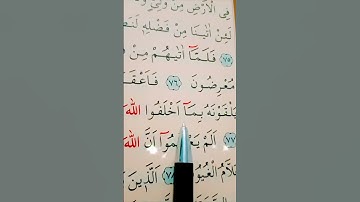 فِي الْاَرْضِ مِنْ وَلِيٍّ وَ
لَئِنْ اٰتٰينَا مِنْ فَضْلِه۪ لَنَصَّ
﴿٧٥﴾ فَلَمَّٓا اٰتٰيهُمْ مِنْ فَ
مُعْرِضُونَ ﴿٧٦﴾ فَاَعْقَبَ
يَلْقَوْنَهُ بِمَٓا اَخْلَفُوا اللّٰهَ
﴿٧٧﴾ اَلَمْ يَعْلَمُٓوا اَنَّ اللّٰهَ
عَلَّامُ الْغُيُوبِ ﴿٧٨﴾ اَلَّذ۪ينَ